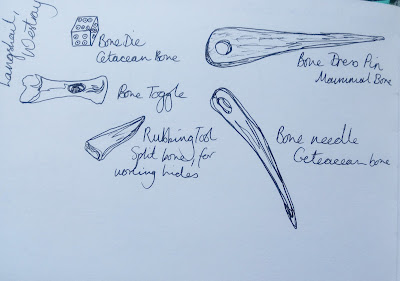 Langskaill,
Westray
Bone Die
Cetacean Bone
Bone Toggle
Rubbing Tool
Split bone, for
working hides
Bone Dress Pin
Mammal Bone
Bone needle
Cetacean bone